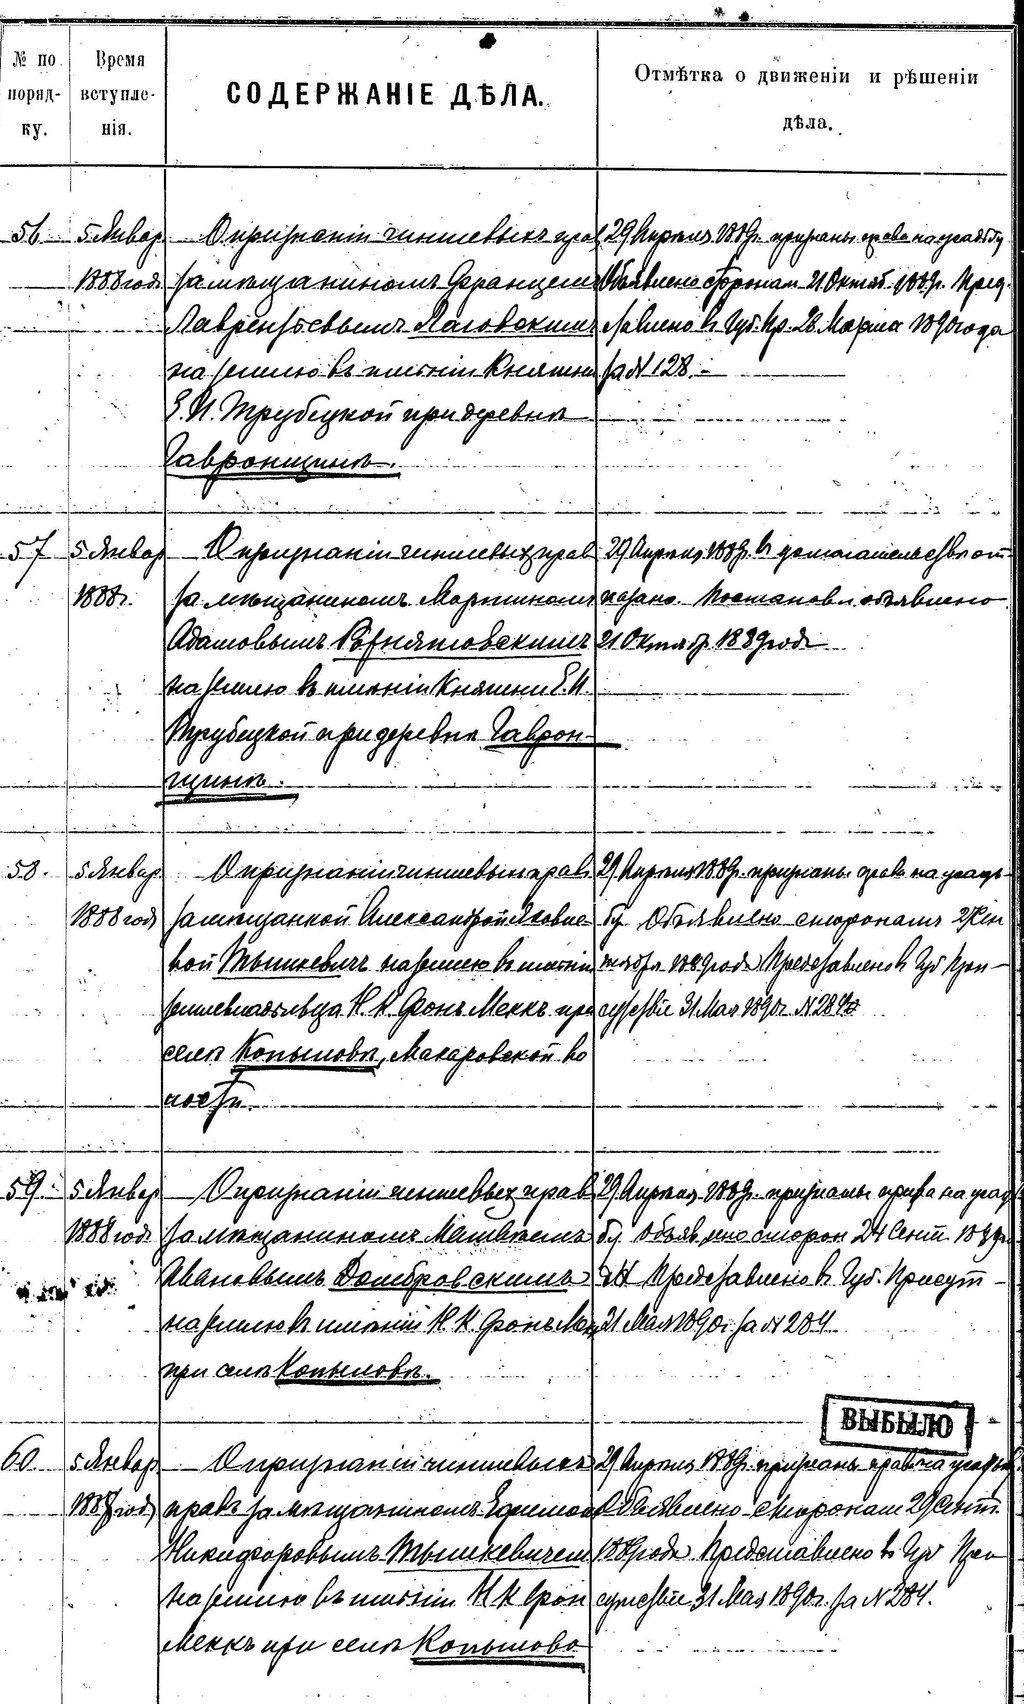 № по поряд-ку.
Время вступле-нія.
СОДЕРЖАНІЕ ДѢЛА.
Отмѣтка о движеніи и рѣшеніи дѣла.
56
5 Январ.
1888 год.
О признаніи чиншевыхъ прав
за мѣщаниномъ Францемъ
Лаврентьевымъ Лаговскимъ
на землю въ имѣніи Княгини
Е. И. Трубецкой при деревнѣ
Гавронщинѣ.
29 Апрѣля 1889г. признаны права на усадьбу
Объявлено сторонам 21 Октяб. 1889г. Пред-
ставлено въ Губ. Пр. 28 Марта 1890 года
за № 128.
57
5 Январ
1888г.
О признаніи чиншевых прав
за мѣщаниномъ Мартиномъ
Адамовымъ
на землю въ имѣніи Княгини Е. И.
Трубецкой при деревнѣ Гаврон-
щинѣ.
29 Апрѣля 1889г. въ домогательствѣ от-
казано. Постановл. объявлено
21 Октяб. 1889 года
58.
5 Январ.
1888 год
О признаніи чиншевыхъ правъ
за мѣщанкой Александрой Яковле-
вой Тышкевичъ на землю въ имѣніи
землевладѣльца К. К. фонъ Меккъ при
селѣ Копыловѣ, Макаровской во
лости.
29 Апрѣля 1889г. признаны права на усадь-
бу. Объявлено сторонамъ 29 Сен
тября 1889 года Представлено въ Губ При-
сутствіе 31 Мая 1890г. № 284
59.
5 Январ
1888 год.
О признаніи чиншевых прав
за мѣщаниномъ Матвѣемъ
Ивановымъ Домбровскимъ
на землю въ имѣніи К. К. фонъ Мек
при селѣ Копыловѣ.
29 Апрѣля 1889г. признаны права на усад
бу. Объявлено сторон 24 Сент. 1889
Представлено въ Губ. Присут-
31 Мая 1890г. за № 284
ВЫБЫЛО
60.
5 Январ.
1888 год
О признаніи чиншевыхъ
правъ за мѣщаниномъ Ефимом
Никифоровымъ Тышкевичем
на землю въ имѣніи К К фон
Меккъ при селѣ Копылово
29 Апрѣля 1889г. признаны права на усадьбу
Объявлено сторонам 29 Сент.
1889 года Представлено въ Губ При
сутствіе 31 Мая 1890г. за № 284.